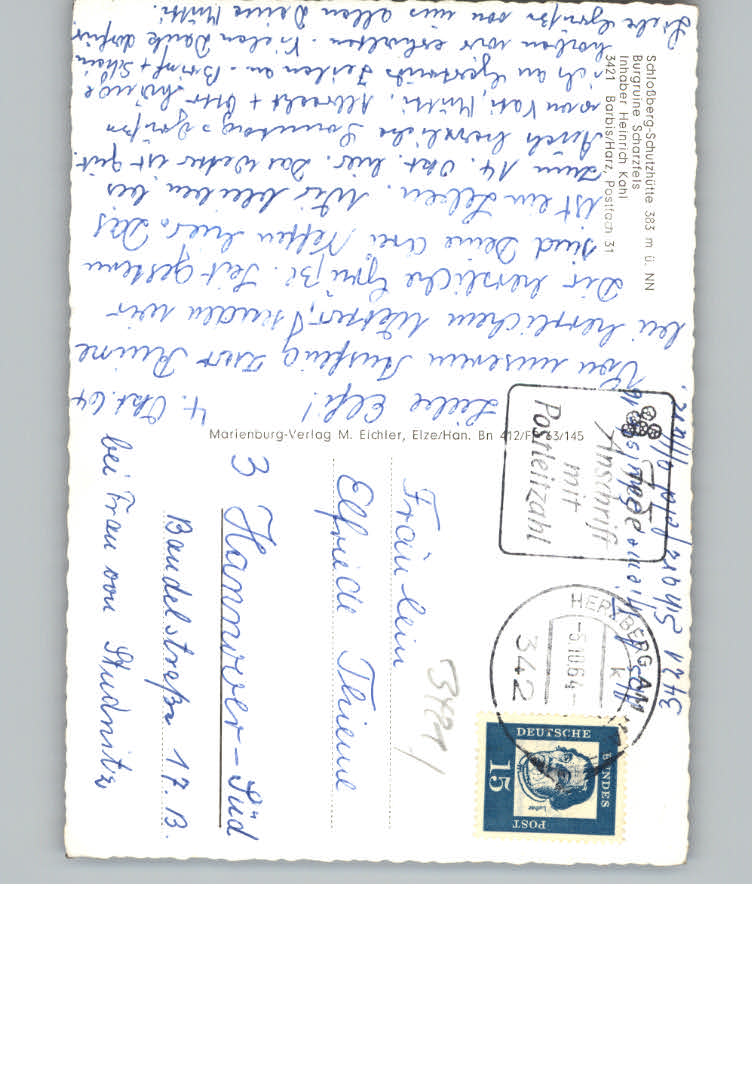 Schloßberg-Schutzhütte 383 m ü. NN
Burgruine Scharzfels
Inhaber Heinrich Kahl
3421 Barbis/Harz, Postfach 31
4. Okt. 64
Liebe Elfi!
Von unserem Ausflug zur Ruine
bei herrlichem Wetter, senden wir
Dir herzliche Grüße. Seit gestern
sind Deine drei Neffen hier. Das
ist ein Leben. Wir bleiben bis
zum 14. Okt. hier. Das Wetter ist gut.
Auch herzliche Sonntagsgrüße
von Vati, Mutti, Albrecht + Otto
ich an Gertruds Zeilen an. Brief + Schein
haben wir erhalten. Vielen Dank dafür
Liebe Grüße von uns allen Deine Mutti.
Marienburg-Verlag M. Eichler, Elze/Han. Bn 412/F 63/145
Anschrift
mit
Postleitzahl
HERZBERG AM
-5.10.64-
k
342
DEUTSCHE
BUNDES
POST
15
Luther
3421
Fräulein
Elfriede Thieme
3 Hannover-Süd
Bandelstraße 17. B.
bei Frau von Studnitz
3421